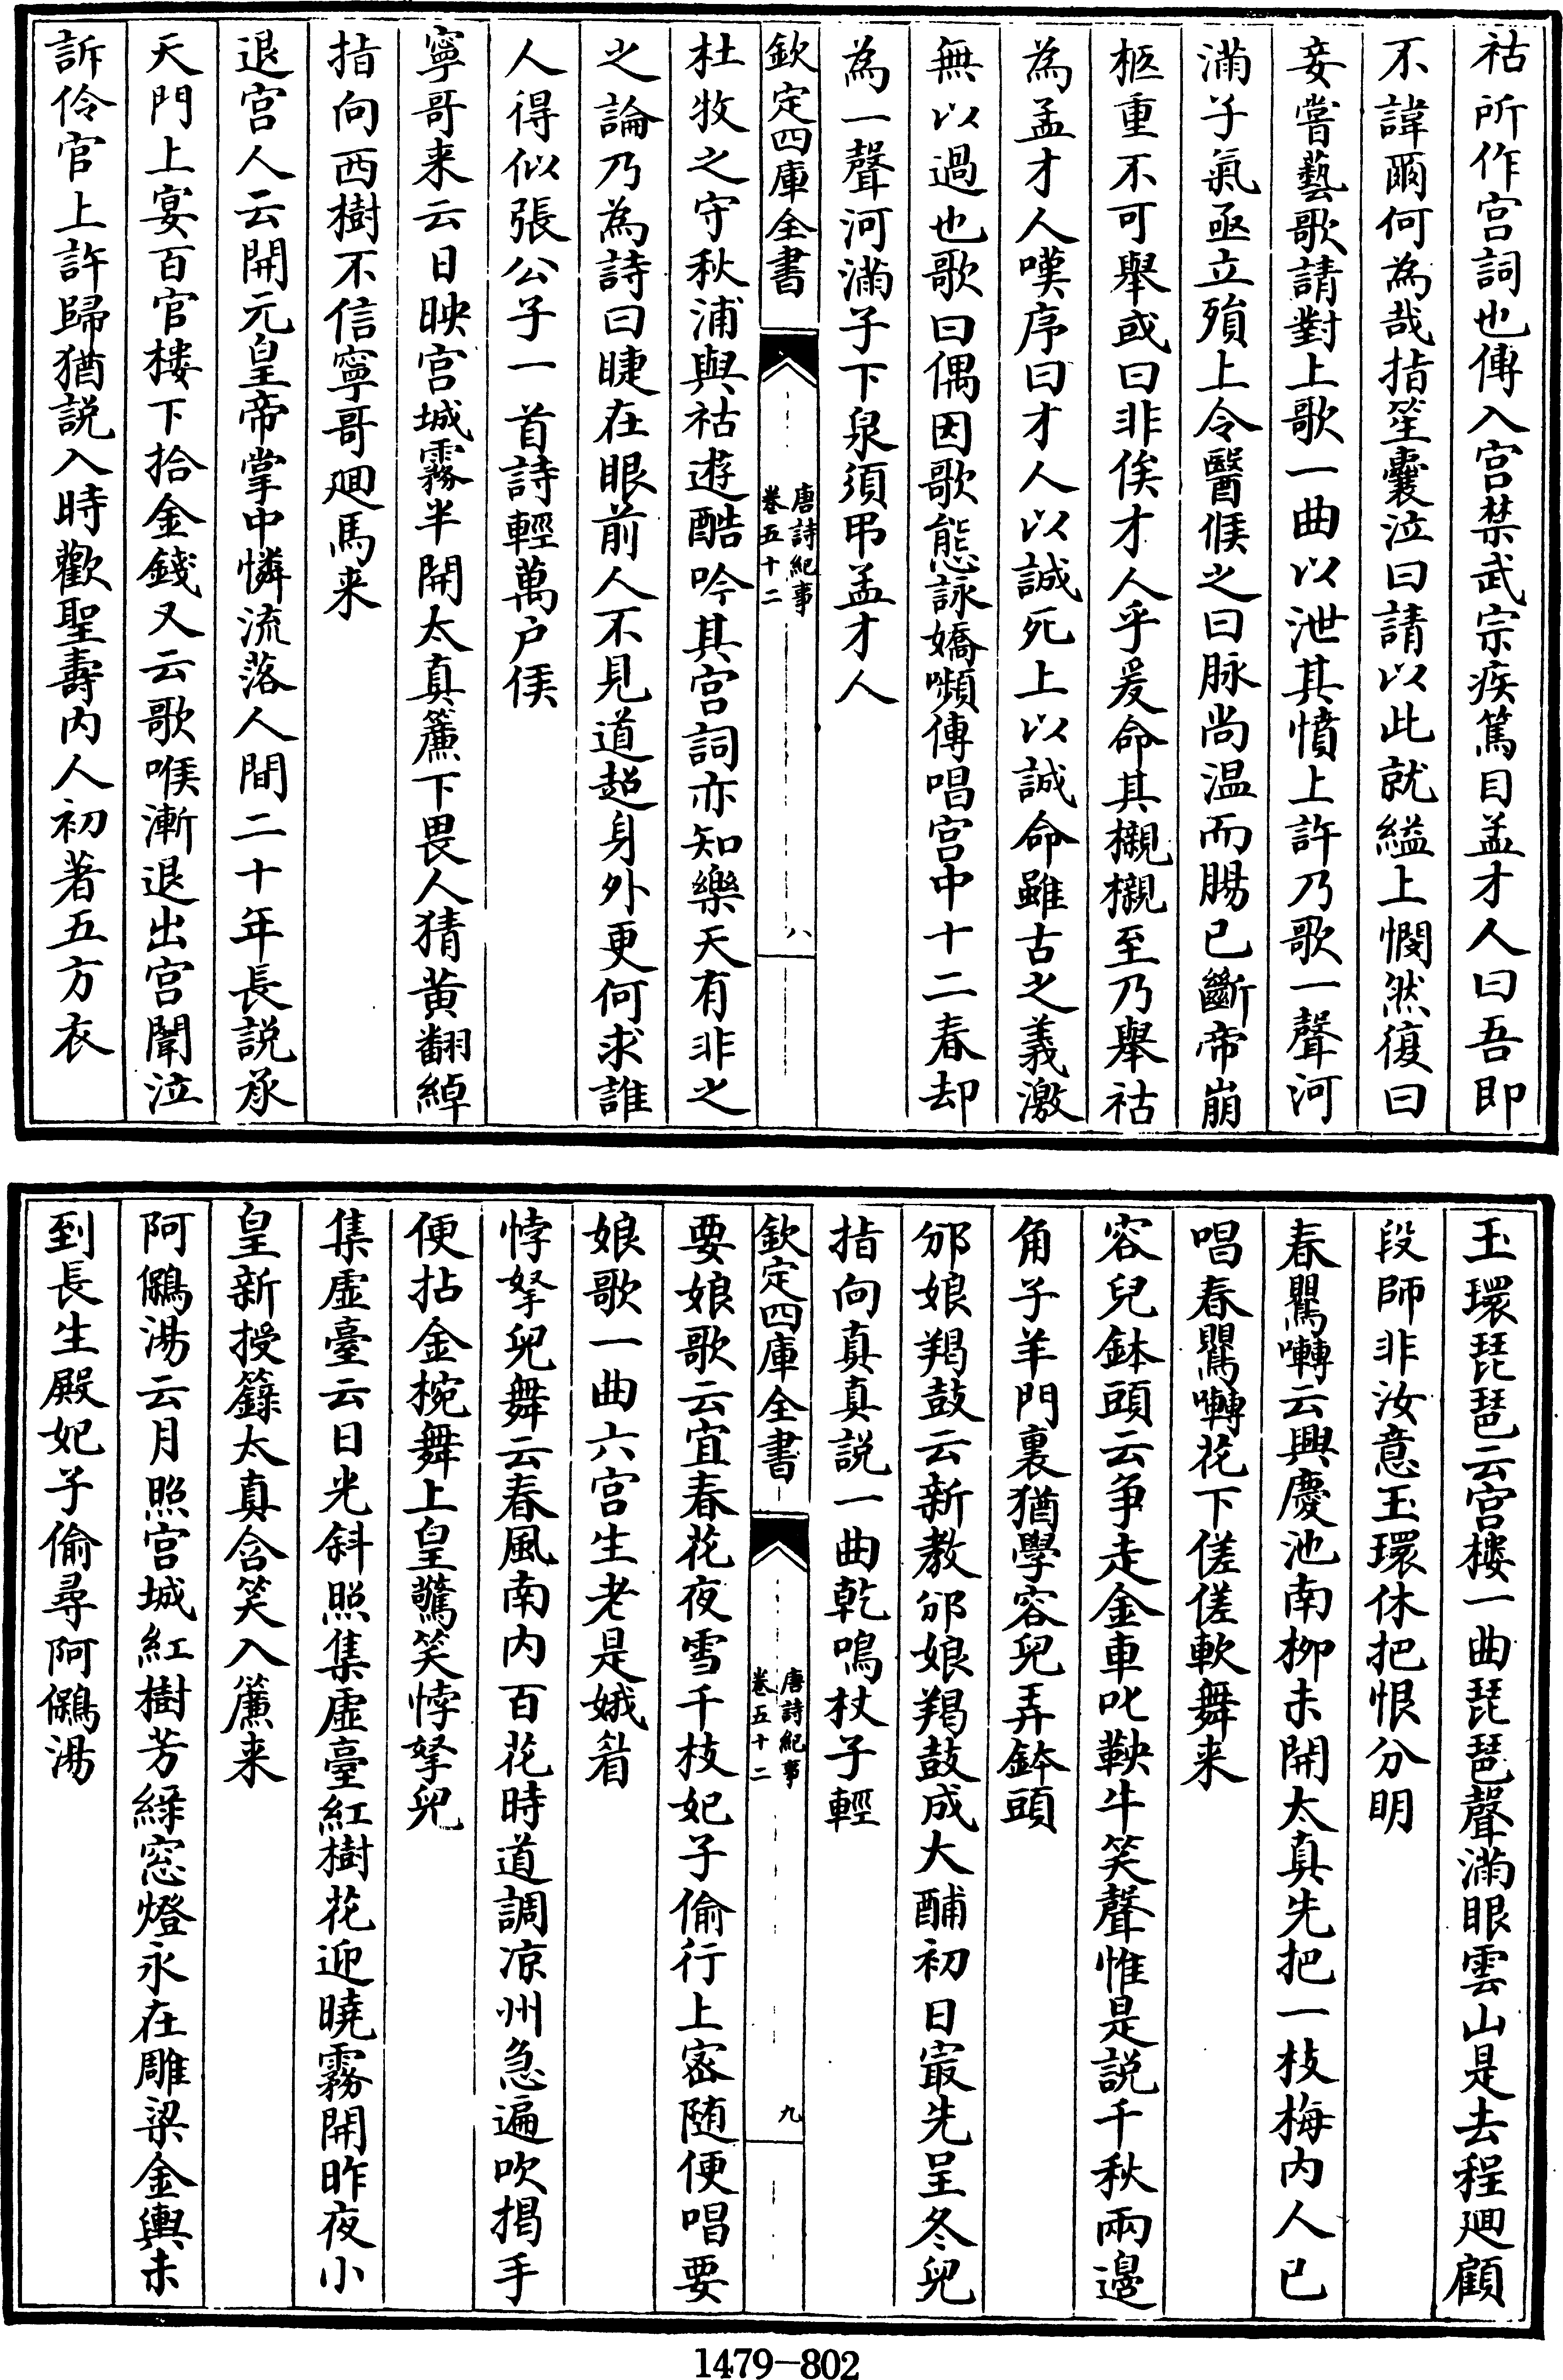 祜所作宫詞也傳入宫禁武宗疾篤目孟才人曰吾即
不諱爾何為哉指笙囊泣曰請以此就縊上憫然復曰
妾嘗藝歌請對上歌一曲以泄其憤上許乃歌一聲河
滿子氣亟立殞上令醫候之曰脉尚温而腸已斷帝崩
柩重不可舉或曰非俟才人乎爰命其櫬櫬至乃舉祜
為孟才人嘆序曰才人以誠死上以誠命雖古之義激
無以過也歌曰偶因歌態詠嬌嚬傳唱宫中十二春却
為一聲河滿子下泉須弔孟才人
欽定四庫全書
唐詩紀事
卷五十二
八
杜牧之守秋浦與祜遊酷吟其宫詞亦知樂天有非之
之論乃為詩曰睫在眼前人不見道超身外更何求誰
人得似張公子一首詩輕萬户侯
寧哥来云日映宫城霧半開太真簾下畏人猜黄翻綽
指向西樹不信寧哥廻馬来
退宫人云開元皇帝掌中憐流落人間二十年長説承
天門上宴百官樓下拾金錢又云歌喉漸退出宫闈泣
訴伶官上許歸猶説入時歡聖壽内人初著五方衣
玉環琵琶云宫樓一曲琵琶聲滿眼雲山是去程廻顧
段師非汝意玉環休把恨分明
春鸎囀云興慶池南柳未開太真先把一枝梅内人已
唱春鸎囀花下傞傞軟舞来
容兒鉢頭云争走金車叱鞅牛笑聲惟是説千秋兩邊
角子羊門裏猶學容兒弄鉢頭
邠娘羯鼓云新教邠娘羯鼓成大酺初日冣先呈冬兒
指向真真説一曲乾鳴杖子輕
欽定四庫全書
唐詩紀事
卷五十二
九
要娘歌云宜春花夜雪千枝妃子偷行上宻随便唱要
娘歌一曲六宫生老是娥眉
悖拏兒舞云春風南内百花時道調凉州急遍吹揭手
便拈金椀舞上皇驚笑悖拏兒
集虚臺云日光斜照集虚臺紅樹花迎曉霧開昨夜小
皇新授籙太真含笑入簾来
阿鸂湯云月照宫城紅樹芳緑窓燈永在雕梁金輿未
到長生殿妃子偷尋阿鸂湯
1479-802